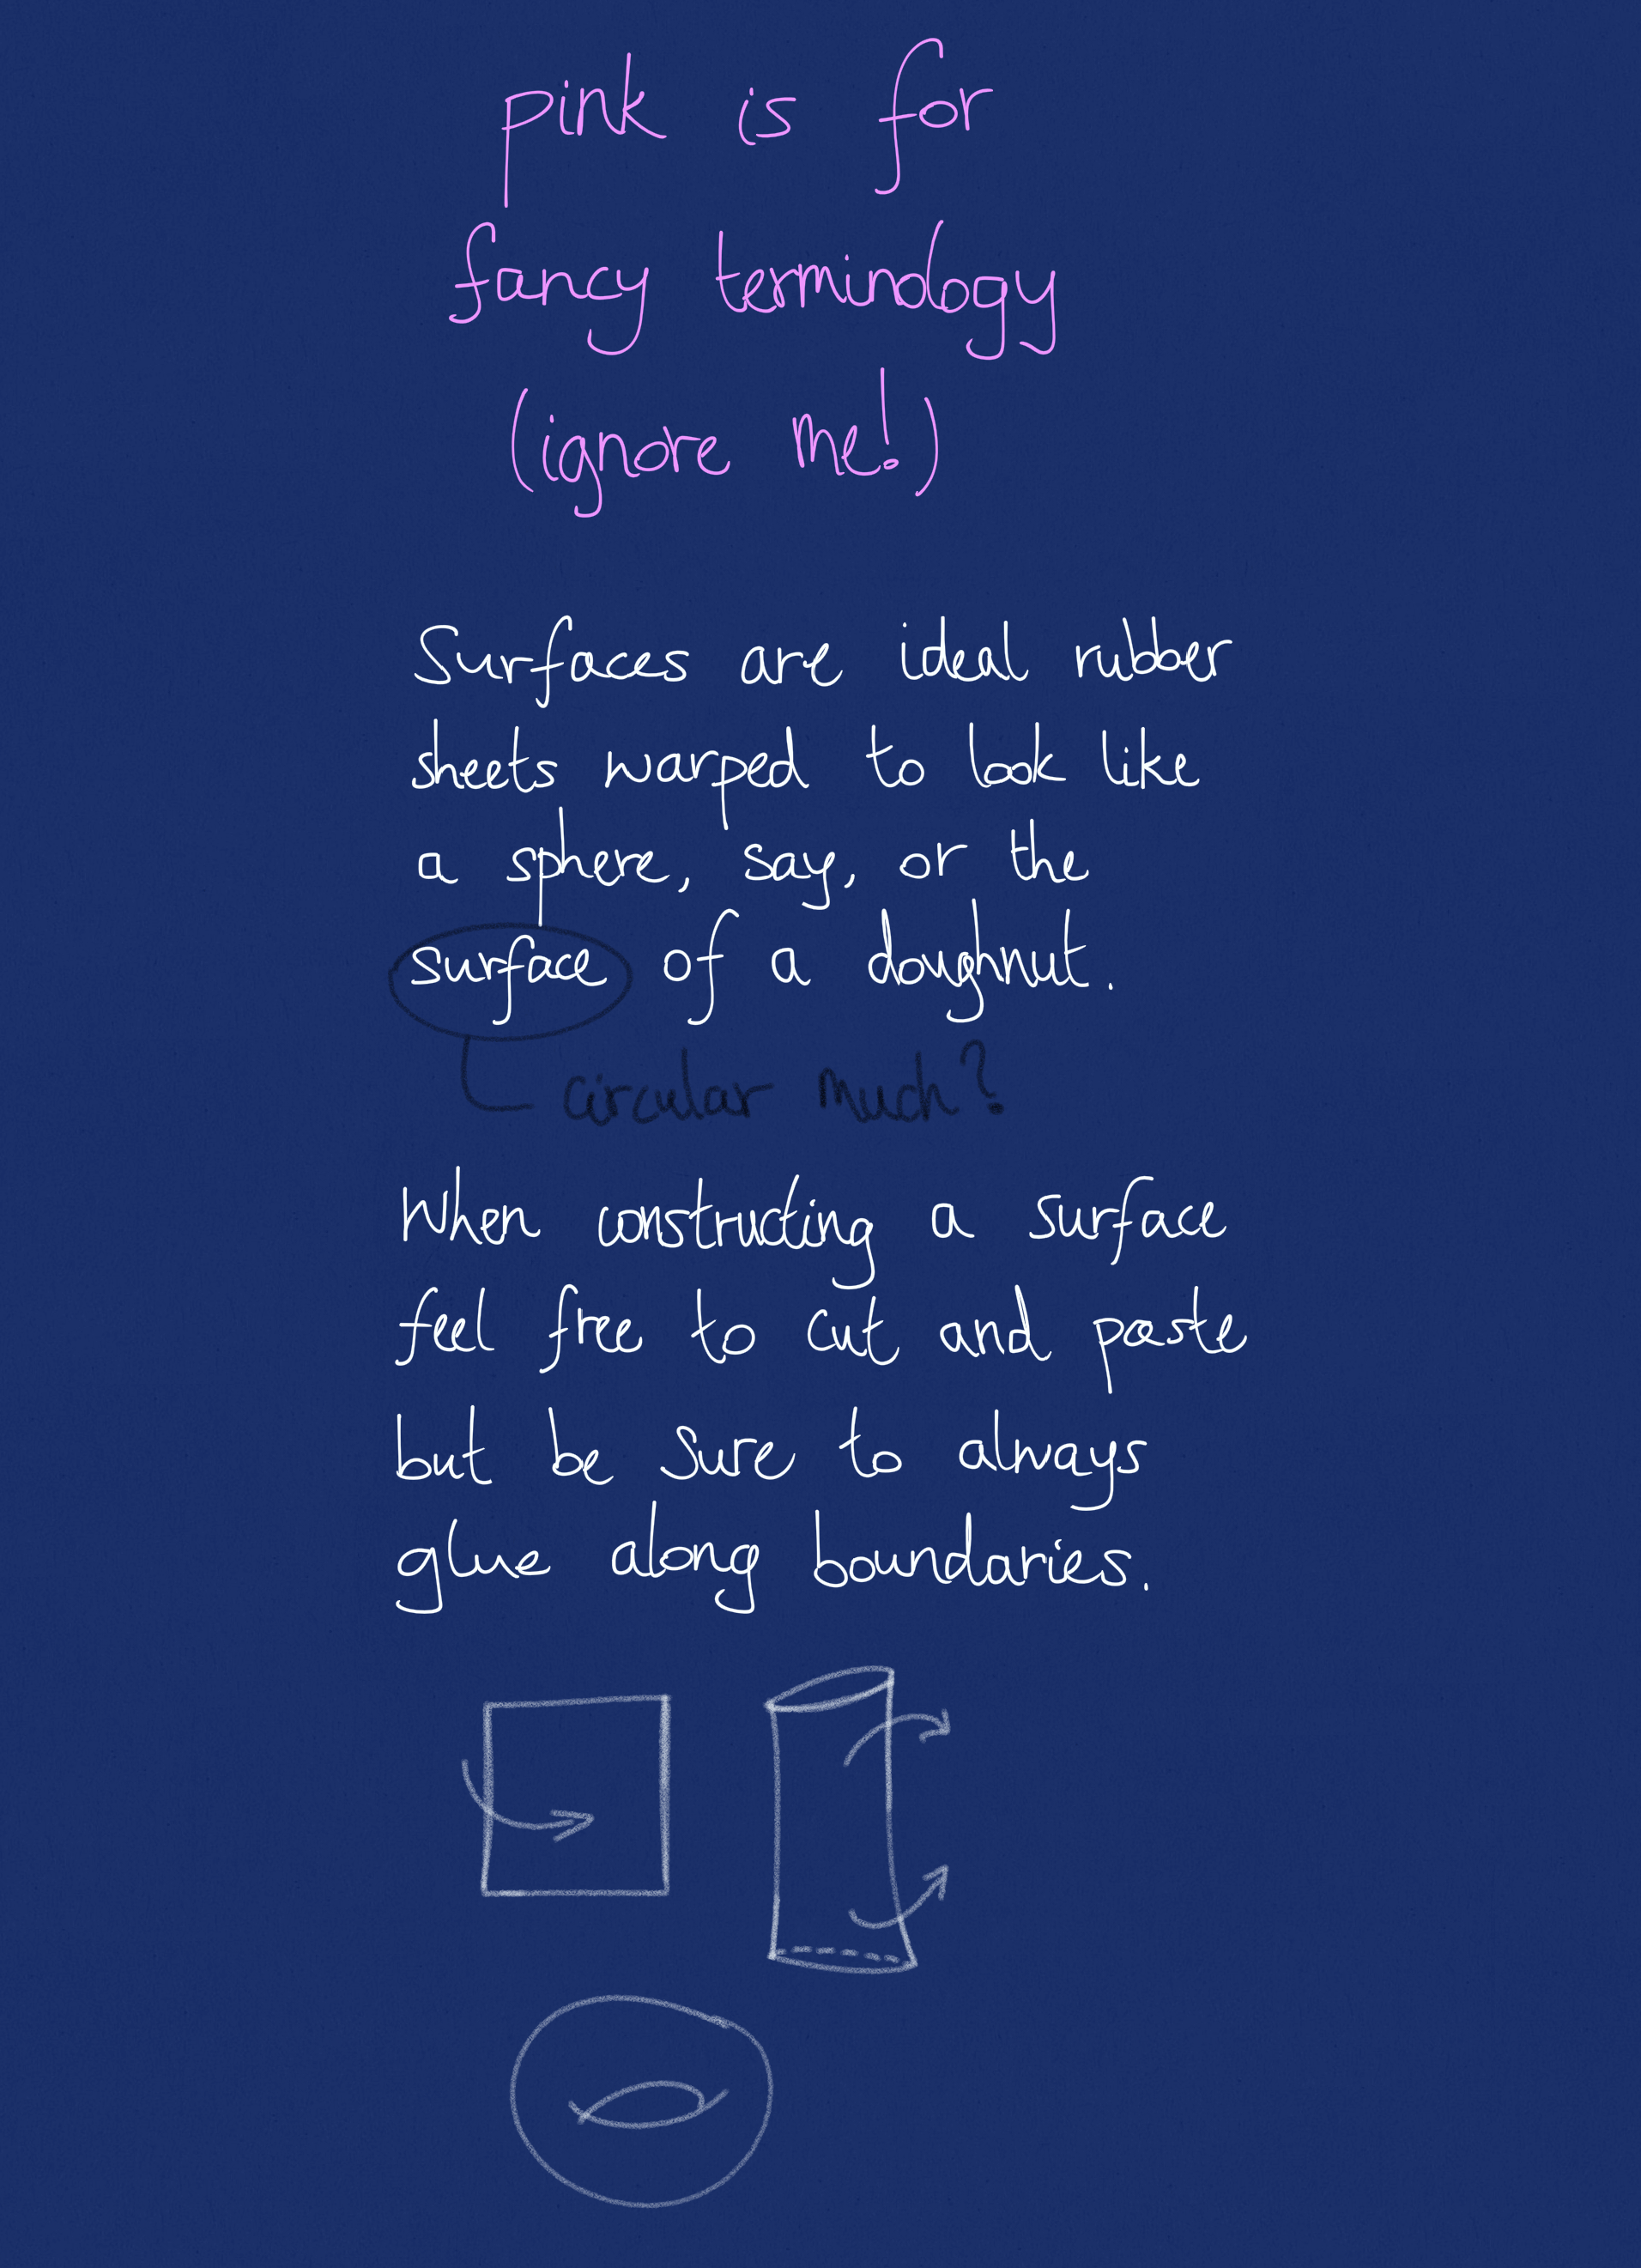 pink is for
fancy terminology
(ignore me!)
Surfaces are ideal rubber
sheets warped to look like
a sphere, say, or the
surface of a doughnut.
circular much?
When constructing a surface
feel free to cut and paste
but be sure to always
glue along boundaries.